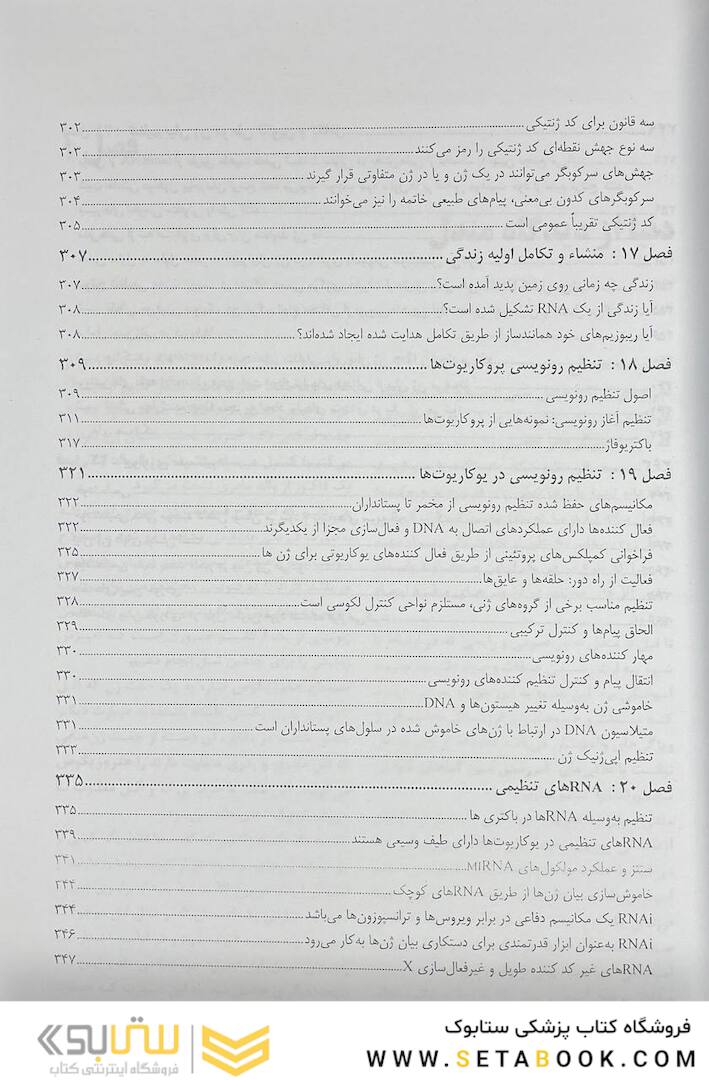 سه قانون برای کد ژنتیکی ........ ۳۰۲
سه نوع جهش نقطه‌ای کد ژنتیکی را رمز می‌کنند ........ ۳۰۳
جهش‌های سرکوبگر می‌توانند در یک ژن و یا در ژن متفاوتی قرار گیرند ........ ۳۰۳
سرکوبگرهای کدون بی‌معنی، پیام‌های طبیعی خاتمه را نیز می‌خوانند ........ ۳۰۴
کد ژنتیکی تقریباً عمومی است ........ ۳۰۵
فصل ۱۷ : منشاء و تکامل اولیه زندگی ........ ۳۰۷
زندگی چه زمانی روی زمین پدید آمده است؟ ........ ۳۰۷
آیا زندگی از یک RNA تشکیل شده است؟ ........ ۳۰۸
آیا ریبوزیم‌های خود همانندساز از طریق تکامل هدایت شده ایجاد شده‌اند؟ ........ ۳۰۸
فصل ۱۸ : تنظیم رونویسی پروکاریوت‌ها ........ ۳۰۹
اصول تنظیم رونویسی ........ ۳۰۹
تنظیم آغاز رونویسی: نمونه‌هایی از پروکاریوت‌ها ........ ۳۱۱
باکتریوفاژ ........ ۳۱۷
فصل ۱۹ : تنظیم رونویسی در یوکاریوت‌ها ........ ۳۲۱
مکانیسم‌های حفظ شده تنظیم رونویسی از مخمر تا پستانداران ........ ۳۲۲
فعال کننده‌ها دارای عملکردهای اتصال به DNA و فعال‌سازی مجزا از یکدیگرند ........ ۳۲۲
فراخوانی کمپلکس‌های پروتئینی از طریق فعال کننده‌های یوکاریوتی برای ژن ها ........ ۳۲۵
فعالیت از راه دور: حلقه‌ها و عایق‌ها ........ ۳۲۷
تنظیم مناسب برخی از گروه‌های ژنی، مستلزم نواحی کنترل لکوسی است ........ ۳۲۸
الحاق پیام‌ها و کنترل ترکیبی ........ ۳۲۹
مهار کننده‌های رونویسی ........ ۳۳۰
انتقال پیام و کنترل تنظیم کننده‌های رونویسی ........ ۳۳۰
خاموشی ژن به‌وسیله تغییر هیستون‌ها و DNA ........ ۳۳۱
متیلاسیون DNA در ارتباط با ژن‌های خاموش شده در سلول‌های پستانداران است ........ ۳۳۱
تنظیم اپی‌ژنیک ژن ........ ۳۳۳
فصل ۲۰ : RNAهای تنظیمی ........ ۳۳۵
تنظیم به‌وسیله RNAها در باکتری ها ........ ۳۳۵
RNAهای تنظیمی در یوکاریوت‌ها دارای طیف وسیعی هستند ........ ۳۳۹
سنتز و عملکرد مولکول‌های MiRNA ........ ۳۴۱
خاموش‌سازی بیان ژن‌ها از طریق RNAهای کوچک ........ ۳۴۴
RNAi یک مکانیسم دفاعی در برابر ویروس‌ها و ترانسپوزون‌ها می‌باشد ........ ۳۴۴
RNAi به‌عنوان ابزار قدرتمندی برای دستکاری بیان ژن‌ها به‌کار می‌رود ........ ۳۴۶
RNAهای غیر کد کننده طویل و غیرفعال‌سازی X ........ ۳۴۷
فروشگاه کتاب پزشکی ستابوک
WWW.SETABOOK.COM
ستابوک
فروشگاه اینترنتی کتاب